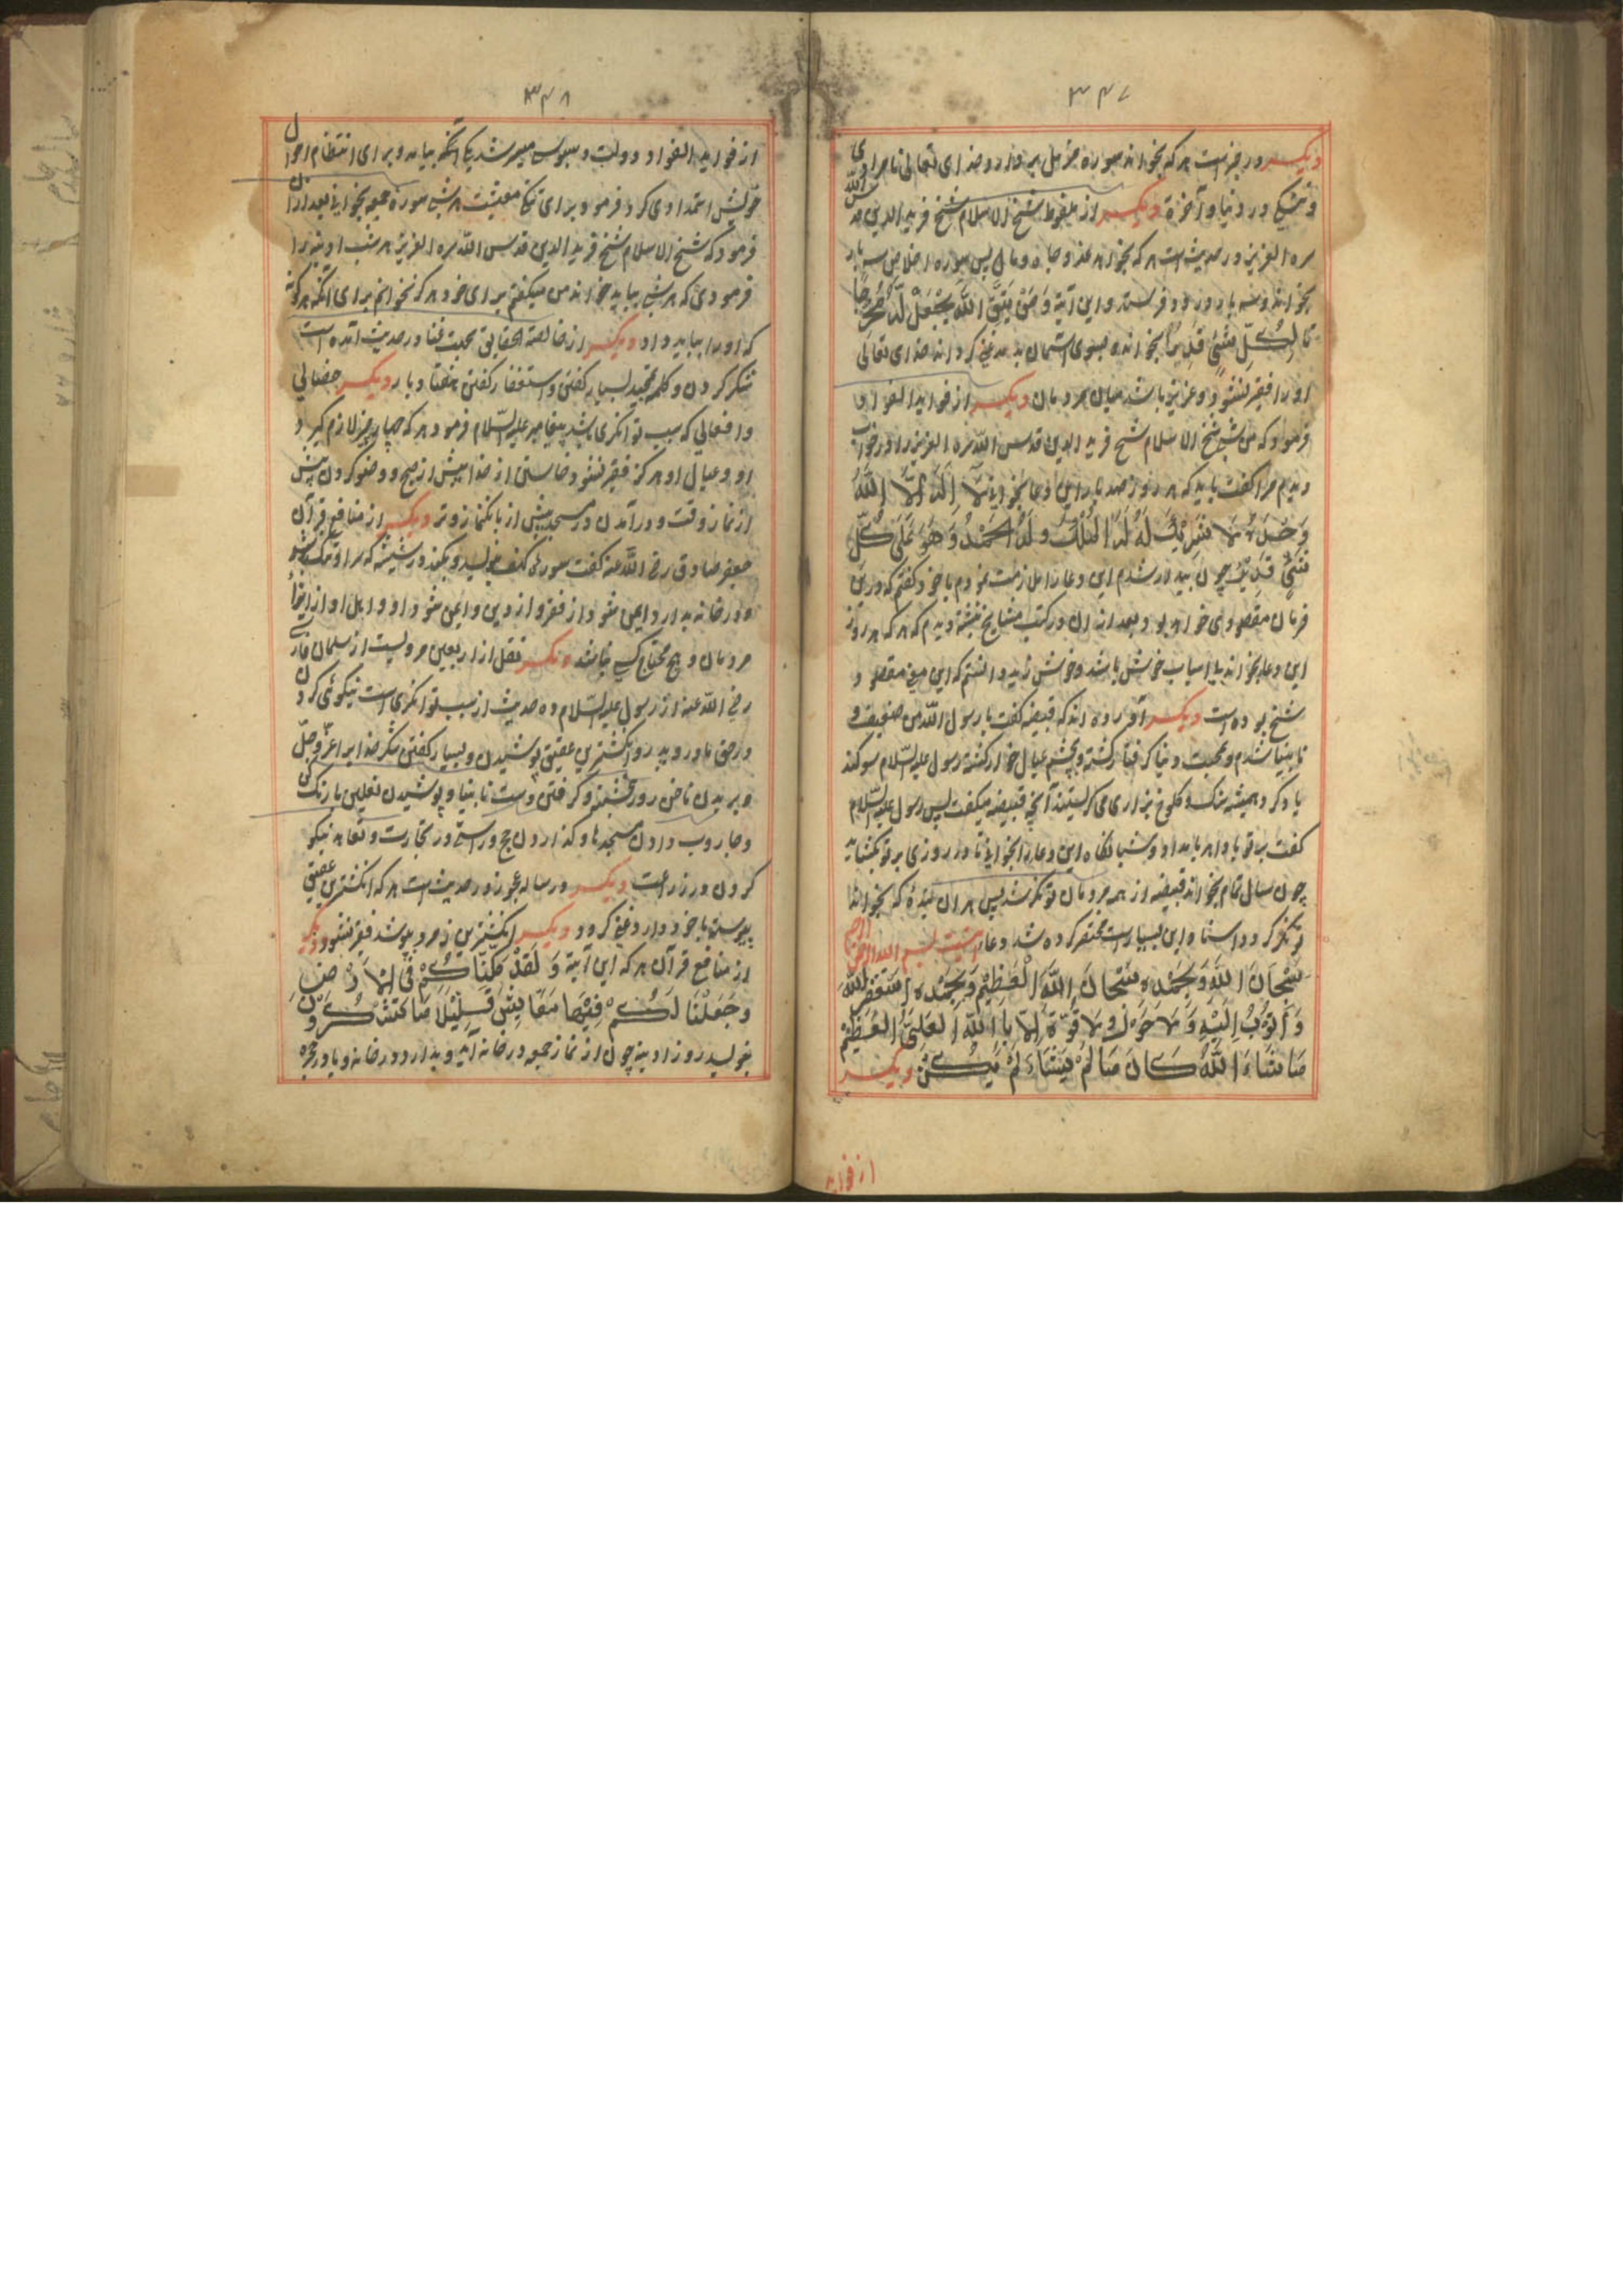 ۳۴۷
دیگر در خبر است هر که بخواند سوره مزمل هر روز دو خدای تعالی نامرادی
و تنگی در دنیا و آخرة دیگر از ملفوظ شیخ الاسلام شیخ فرید الدین قدس الله
سره العزیز در حدیث است هر که بخواهد عز و جاه و مال پس سوره اخلاص سه بار
بخواند و سه بار درود فرستد و این آیة وَمَنْ يَتَّقِ اللّٰهَ يَجْعَلْ لَهُ مَخْرَجًا
تا لِكُلِّ شَيْءٍ قَدْرًا بخواند و بسوی آسمان بدمد غنی کرداند خدای تعالی
او را فقیر نشود و عزیز باشد میان مردمان دیگر از فواید الفواد
فرمود که من شبی شیخ الاسلام شیخ فرید الدین قدس الله سره العزیز را در خواب
دیدم مرا کفت باید که هر روز صد بار این دعا بخوانی لَا إِلٰهَ إِلَّا اللّٰهُ
وَحْدَهُ لَا شَرِيْكَ لَهُ لَهُ الْمُلْكُ وَلَهُ الْحَمْدُ وَهُوَ عَلٰى كُلِّ
شَيْءٍ قَدِيْرٌ چون بیدار شدم این دعا را ملازمت نمودم با خود کفتم که درین
فرمان مقصودی خواهد بود بعد از ان در کتب مشایخ نبشته دیدم که هر که هر روز
این دعا بخواند بی اسباب خوش باشد و خوش زید دانستم که این معنی مقصود
شیخ بوده است دیگر آورده اند که قبیضه کفت یا رسول الله من ضعیف و
نابینا شدم و بمحبت دنیا کرفتار کشته و بچشم عیال خوار کشته رسول علیه السلام سوکند
یاد کرد و همیشه سنک و کلوخ بزاری می کریستند آنچه قبیضه میکفت پس رسول علیه السلام
کفت بر تو باد هر بامداد و شبانکاه این دعا را بخوانی تا در روزی بر تو بکشاید
چون سال تمام بخواند قبیضه از همه مردمان تونکر شد پس هر آن بنده که بخواند
تونکر کردد اسناد این بسیار است مختصر کرده شد دعا اینست بسم الله الرحمن الرحیم
سُبْحَانَ اللّٰهِ وَبِحَمْدِهِ سُبْحَانَ اللّٰهِ الْعَظِيْمِ وَبِحَمْدِهِ أَسْتَغْفِرُ اللّٰهَ
وَأَتُوْبُ إِلَيْهِ وَلَا حَوْلَ وَلَا قُوَّةَ إِلَّا بِاللّٰهِ الْعَلِيِّ الْعَظِيْمِ
مَا شَاءَ اللّٰهُ كَانَ مَا لَمْ يَشَاءْ لَمْ يَكُنْ دیگر
از فواید
۳۴۸
از فواید الفواد دولت و بیوس میسر شد یکی آنکه بیامد و برای انتظام احوال
خویش استمداد می کرد فرمود برای تنکی معیشت هر شب سورة جمعه بخوانی بعد ازان
فرمود که شیخ الاسلام شیخ فرید الدین قدس الله سره العزیز هر شب آدینه را
فرمودی که هر شب بباید خواند من میکفتم برای خود هرکز نخوانم برای آنکه هر کونه
که او را بباید داد دیگر از خالصة الحقایق محبت غنا در حدیث آمده است
شکر کردن و کلمه تمجید بسیار کفتن و استغفار کفتن هفتاد بار دیگر خصالی
و افعالی که سبب توانکری باشد پیغامبر علیه السلام فرمود هر که چهار چیز لازم کیرد
او و عیال او هرکز فقیر نشود خاستن از خواب پیش از صبح و وضو کردن پیش
از نماز وقت و در آمدن در مسجد پیش از بانک نماز و تر دیگر از منافع قرآن
جعفر صادق رضی الله عنه کفت سورة کهف بنویسد و بکند در شیشه که سر او تنک شود
و در خانه بدارد ایمن شود از فقر و از دین و ایمن شود او و اهل او از ایذاء
مردمان و هیچ محتاج کسی نباشد دیگر نقل از اربعین مرویست از سلمان فارسی
رضی الله عنه از رسول علیه السلام ده حدیث از سبب توانکری است نیکوئی کردن
در حق مادر و پدر و انکشترین عقیق پوشیدن و بسیار کفتن شکر خدایرا عز و جل
و بریدن ناخن روز پنجشنبه و کرفتن دست نابینا و پوشیدن نعلین با رنک
و جاروب دادن مسجدها و کذاردن حج و راستی در تجارت و تعاهد نیکو
کردن در زراعت دیگر در رساله عجوز در حدیث است هر که انکشترین عقیق
پیوسته با خود دارد غنی کردد دیگر انکشترین زمرد بپوشد فقیر نشود دیگر
از منافع قرآن هر که این آیة وَلَقَدْ مَكَّنَّاكُمْ فِي الْأَرْضِ
وَجَعَلْنَا لَكُمْ فِيْهَا مَعَايِشَ قَلِيْلًا مَا تَشْكُرُوْنَ
بنویسد روز ادینه چون از نماز جمعه در خانه آید و بدارد در خانه و یا در حجره